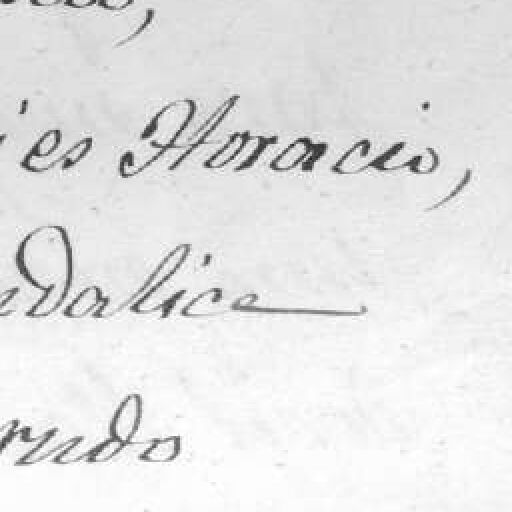 es Horacio,
dalice
rudo